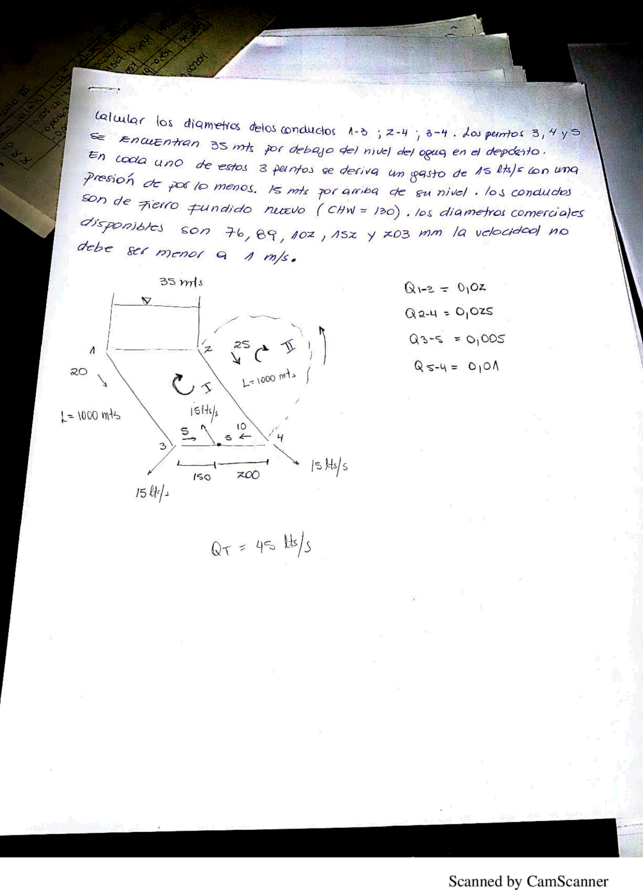 Calcular los diametros delos conductos 1-3 ; 2-4 ; 3-4 . Los puntos 3, 4 y 5
se encuentran 35 mts por debajo del nivel del agua en el depósito.
En cada uno de estos 3 puntos se deriva un gasto de 15 lts/s con una
presión de por lo menos. 15 mts por arriba de su nivel . los conductos
son de fierro fundido nuevo ( CHW = 130) . los diametros comerciales
disponibles son 76, 89, 102, 152 y 203 mm la velocidad no
debe ser menor a 1 m/s.
35 mts
Q1-3 = 0,02
Q2-4 = 0,025
Q3-5 = 0,005
Q5-4 = 0,01
1
2
25
II
20
I
L=1000 mts
L= 1000 mts
15lts/s
5
10
3
5
4
150
200
15 lts/s
15 lt/s
QT = 45 lts/s
Scanned by CamScanner